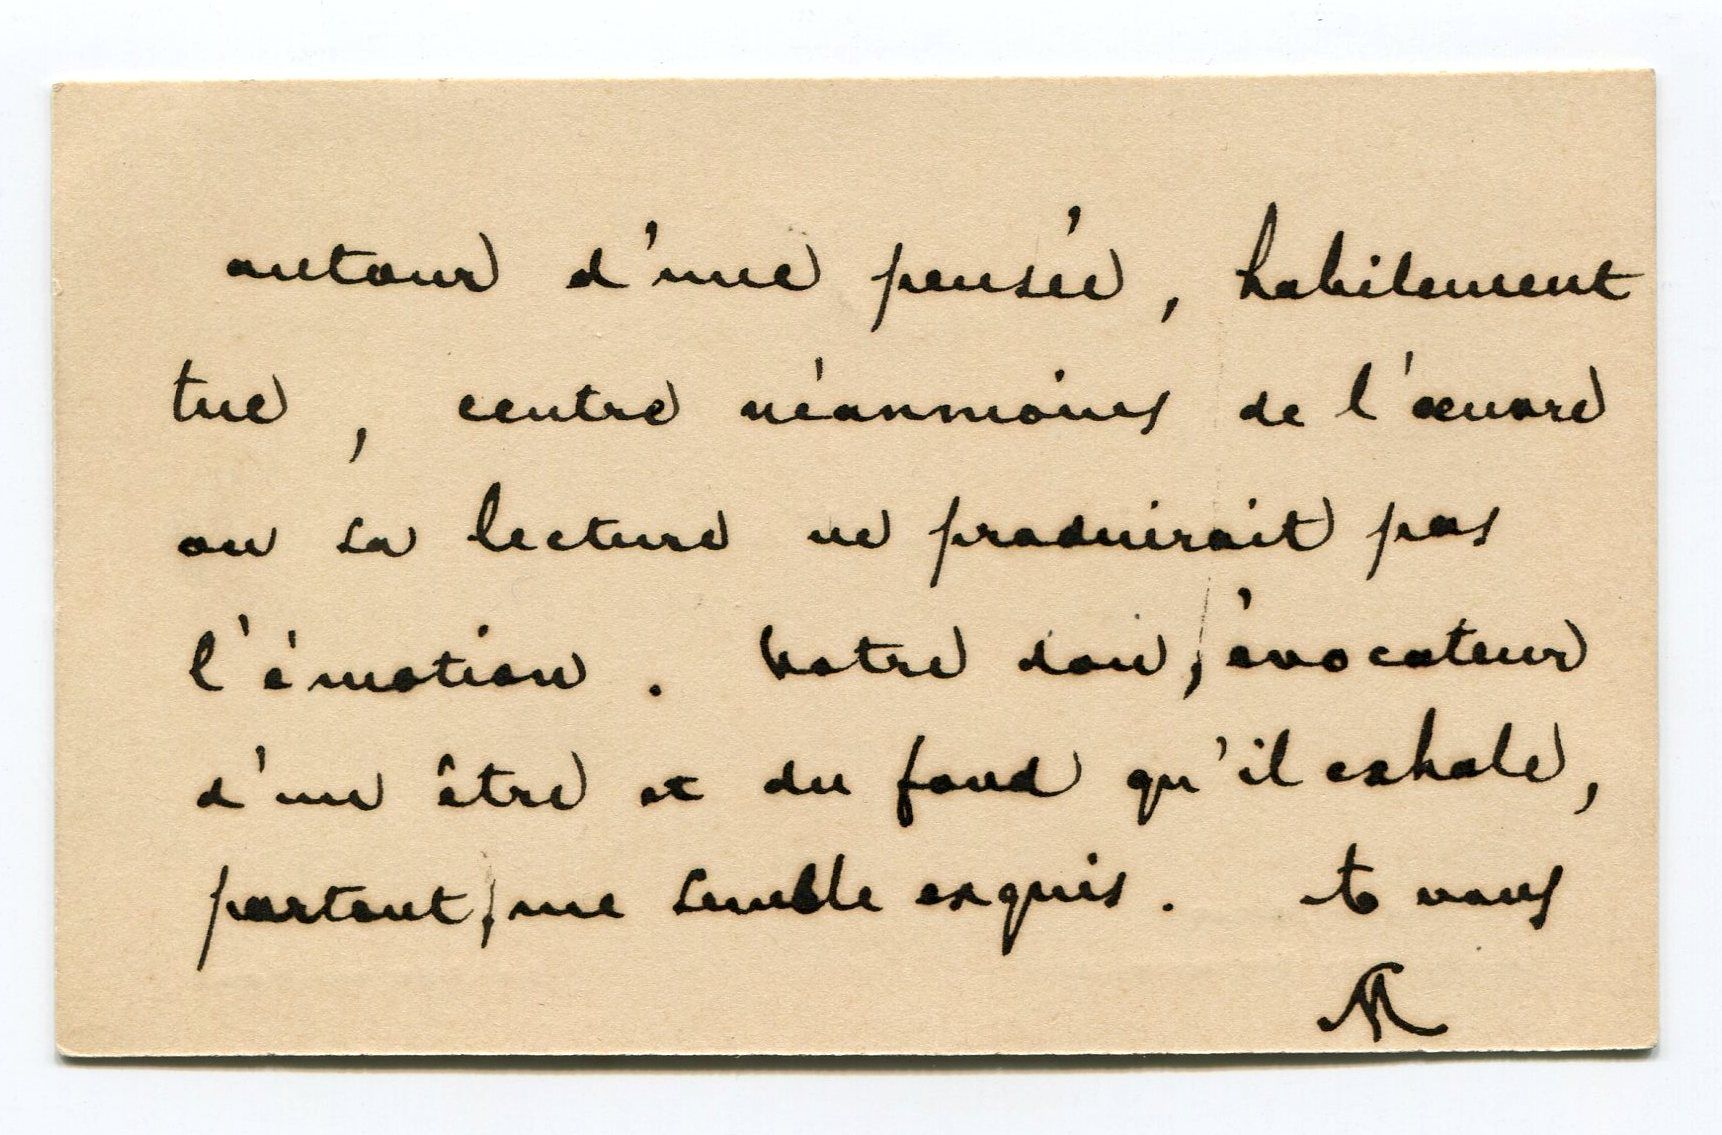 autour d'une pensée, habilement
tue, centre néanmoins de l'œuvre
ou sa lecture ne produirait pas
l'émotion. Votre don, évocateur
d'un être et du fond qu'il exhale,
partout, me semble exquis. À vous
SM